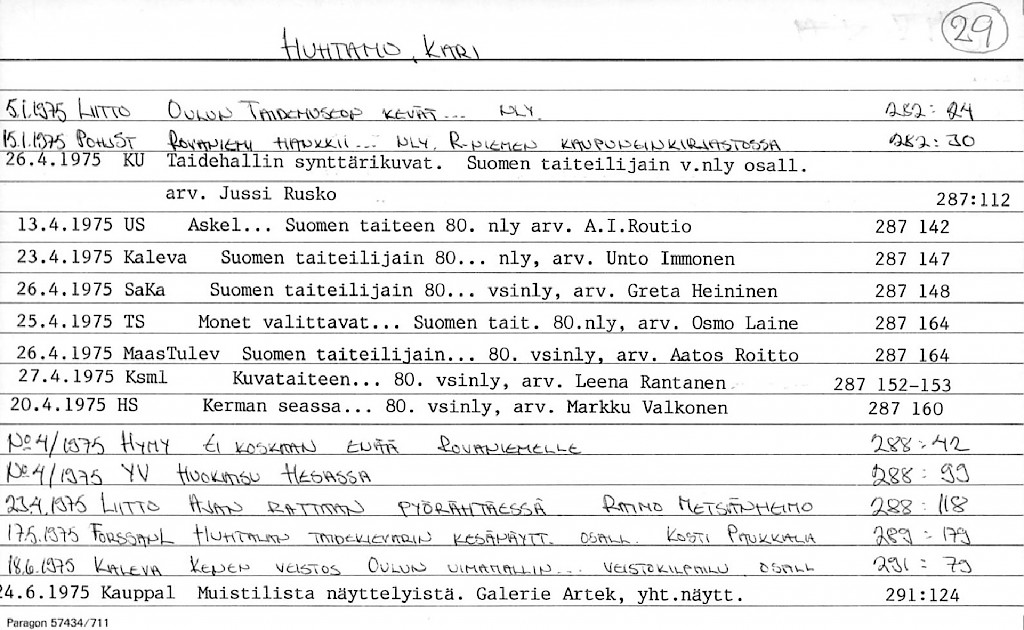 29
HUHTAMO, KARI
5.1.1975 LIITTO OULUN TAIDEMUSEON KEVÄT... NLY. 282:24
15.1.1975 POHJST ROVANIEMI HANKKII... NLY. R-NIEMEN KAUPUNGINKIRJASTOSSA 282:30
26.4.1975 KU Taidehallin synttärikuvat. Suomen taiteilijain v.nly osall.
arv. Jussi Rusko 287:112
13.4.1975 US Askel... Suomen taiteen 80. nly arv. A.I.Routio 287 142
23.4.1975 Kaleva Suomen taiteilijain 80... nly, arv. Unto Immonen 287 147
26.4.1975 SaKa Suomen taiteilijain 80... vsinly, arv. Greta Heininen 287 148
25.4.1975 TS Monet valittavat... Suomen tait. 80.nly, arv. Osmo Laine 287 164
26.4.1975 MaasTulev Suomen taiteilijain... 80. vsinly, arv. Aatos Roitto 287 164
27.4.1975 Ksml Kuvataiteen... 80. vsinly, arv. Leena Rantanen 287 152-153
20.4.1975 HS Kerman seassa... 80. vsinly, arv. Markku Valkonen 287 160
No 4/1975 HYMY EI KOSKAAN ENÄÄ ROVANIEMELLE 288:42
No 4/1975 YV HUOKAISU HESASSA 288:99
23.4.1975 LIITTO AJAN RATTAAN PYÖRÄHTÄESSÄ RAIMO METSÄNHEIMO 288:118
17.5.1975 FORSSANL HUHTALAN TAIDEKIEVARIN KESÄNÄYTT. OSALL. KOSTI PAUKKALA 289:179
18.6.1975 KALEVA KENEN VEISTOS OULUN UIMAHALLIN... VEISTOKILPAILU OSALL 291:79
24.6.1975 Kauppal Muistilista näyttelyistä. Galerie Artek, yht.näytt. 291:124
Paragon 57434/711